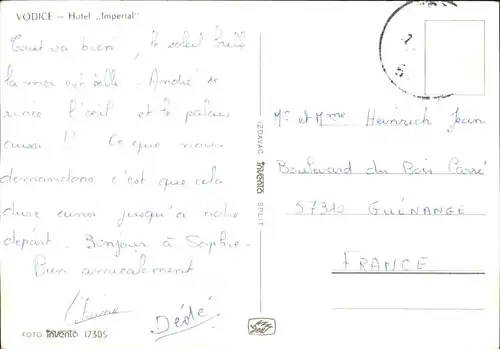 VODICE – Hotel „Imperial"
Tout va bien, le soleil brille
la mer est belle. André se
rince l'œil et le palais
aussi !! Ce que nous
demandons c'est que cela
dure ainsi jusqu'à notre
départ. Bonjour à Sophie.
Bien amicalement
Dédé
FOTO invento 17305
IZDAVAČ invento SPLIT
Mr et Mme Heinrich Jean
Boulevard du Bois Carré
57310 GUÉNANGE
FRANCE